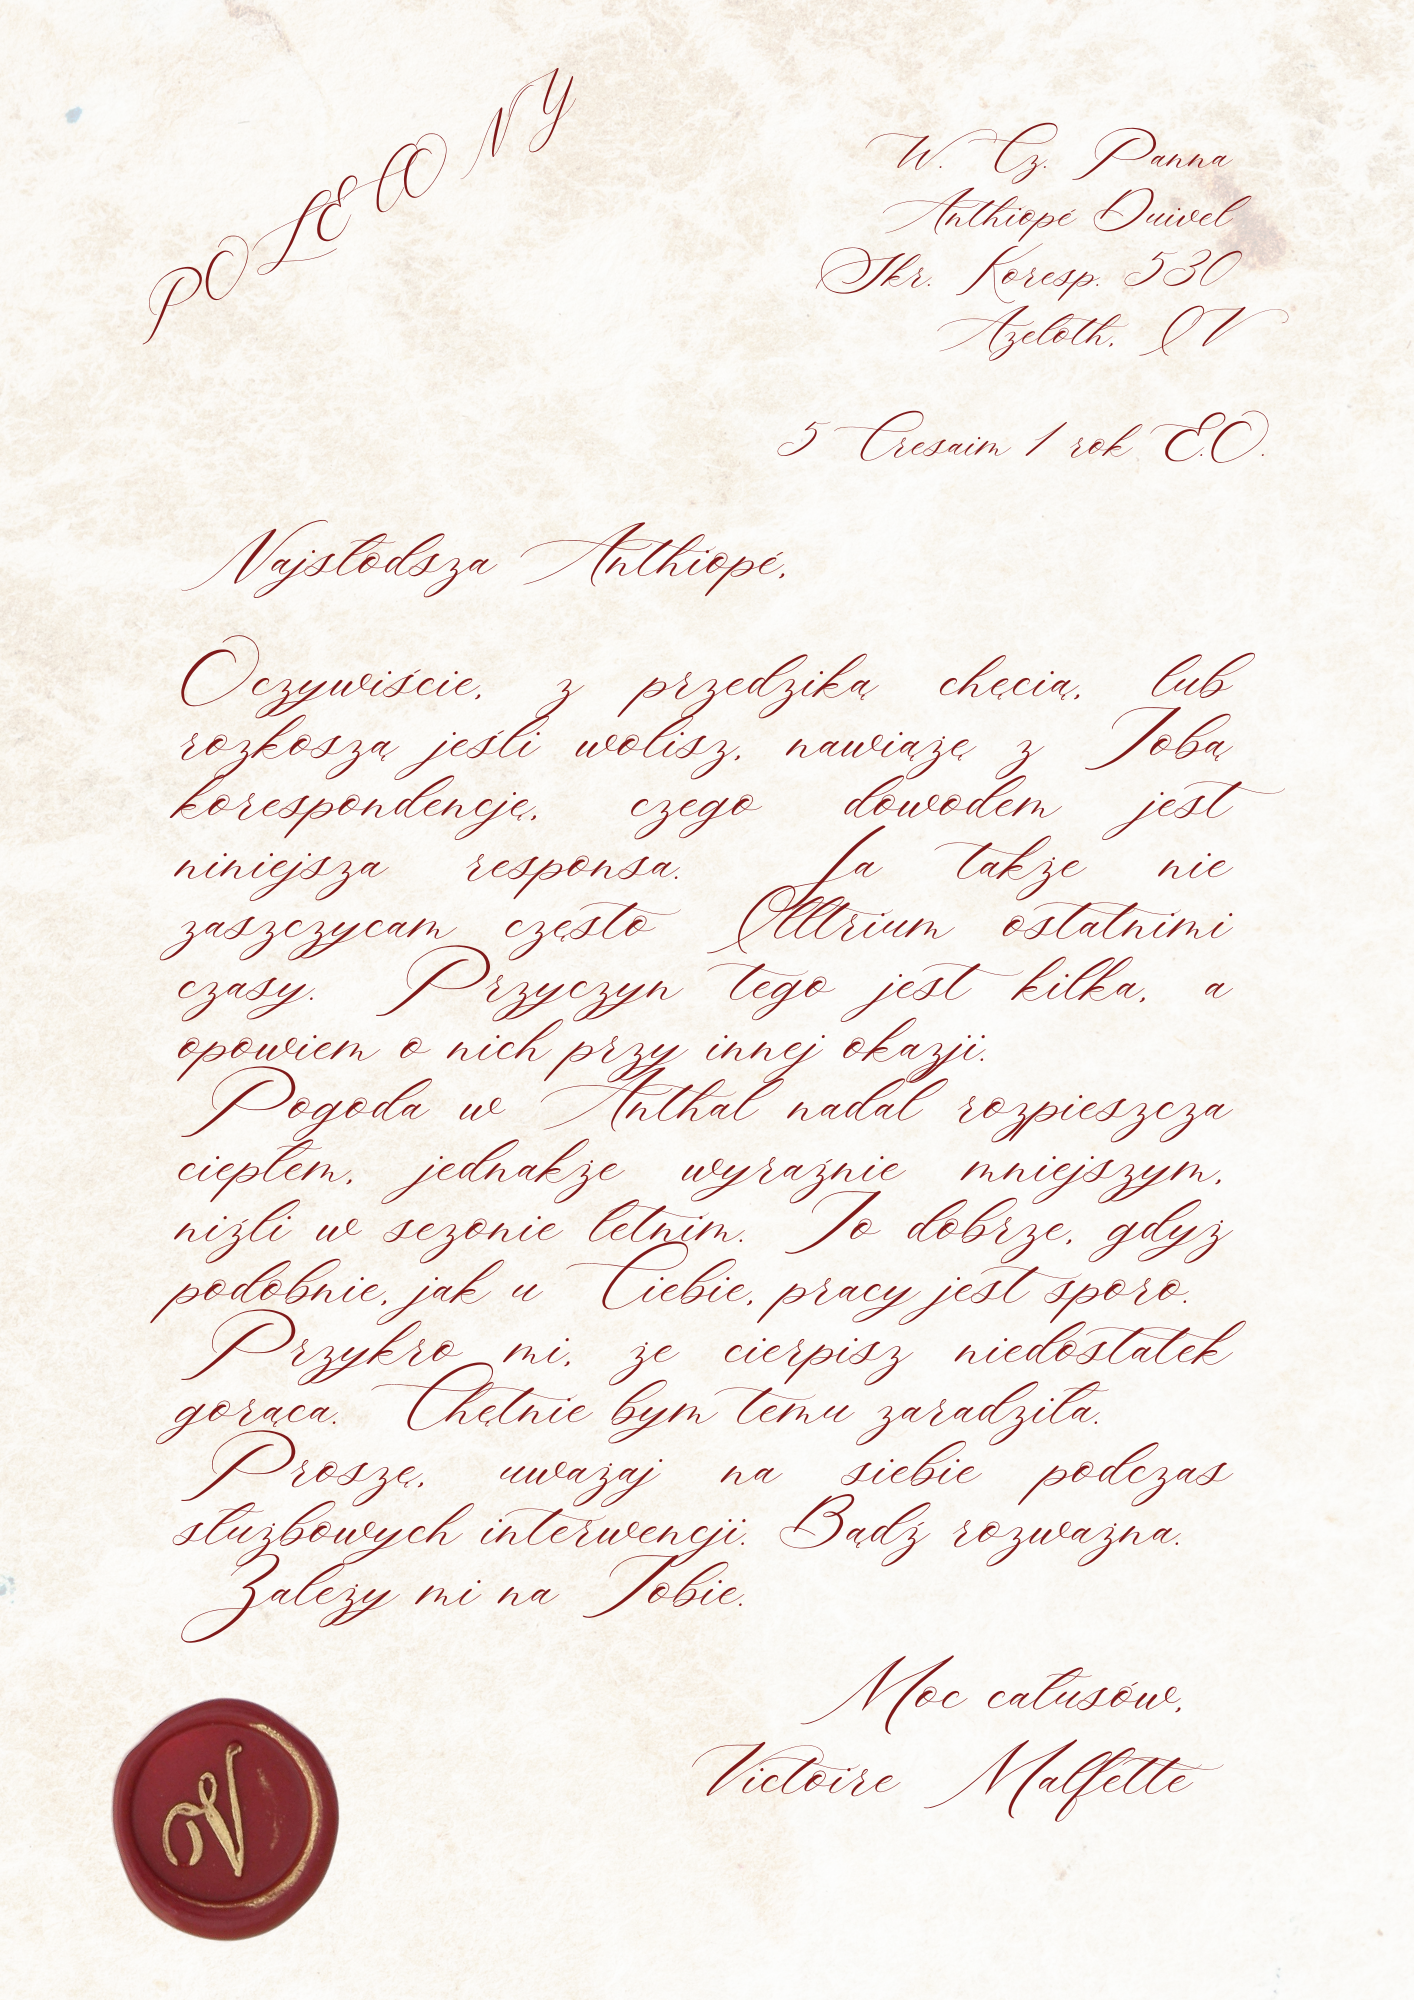 POLECONY
W. Cz. Panna
Anthiopé Duivel
Skr. Koresp. 530
Azeloth, IV
5 Cresaim 1 rok E.O.
Najsłodsza Anthiopé,
Oczywiście, z przedziką chęcią, lub
rozkoszą jeśli wolisz, nawiążę z Tobą
korespondencję, czego dowodem jest
niniejsza responsa. Ja także nie
zaszczycam często Illtrium ostatnimi
czasy. Przyczyn tego jest kilka, a
opowiem o nich przy innej okazji.
Pogoda w Anthal nadal rozpieszcza
ciepłem, jednakże wyraźnie mniejszym,
niźli w sezonie letnim. To dobrze, gdyż
podobnie, jak u Ciebie, pracy jest sporo.
Przykro mi, że cierpisz niedostatek
gorąca. Chętnie bym temu zaradziła.
Proszę, uważaj na siebie podczas
służbowych interwencji. Bądź rozważna.
Zależy mi na Tobie.
Moc całusów,
Victoire Malfette
V